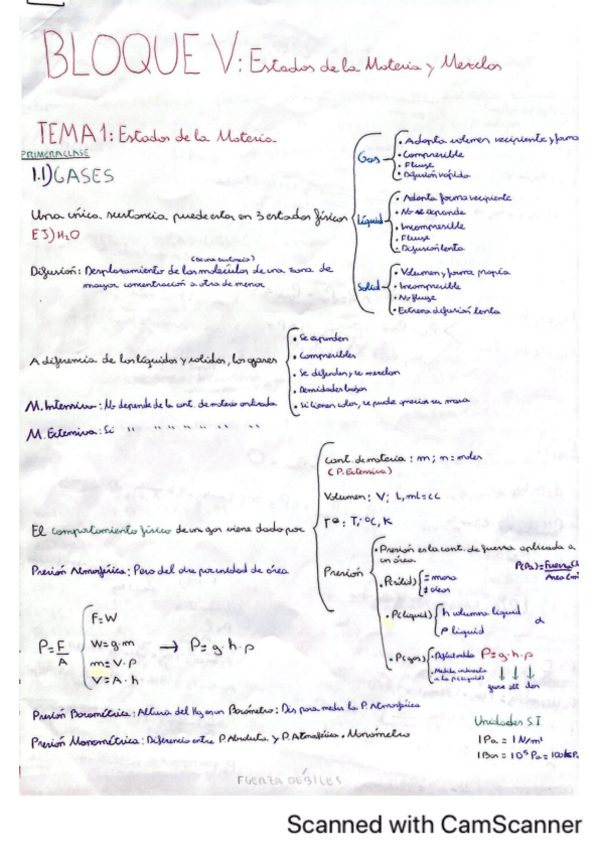 BLOQUE V: Estados de la Materia y Mezclas
TEMA 1: Estados de la Materia
PRIMERA CLASE
1.1) GASES
Gas
• Adopta volumen recipiente y forma
• Compresible
• Fluye
• Difusión rápida
Una única sustancia puede estar en 3 estados físicos
EJ) H₂O
Líquid
• Adopta forma recipiente
• No se expande
• Incompresible
• Fluye
• Difusión lenta
Difusión: Desplazamiento de las moléculas de una zona de
mayor concentración a otra de menor
Solid
• Volumen y forma propia
• Incompresible
• No fluye
• Extrema difusión lenta
A diferencia de los líquidos y solidos, los gases
• Se expanden
• Compresibles
• Se difunden y se mezclan
• Densidades bajas
• Si tienen color, se puede apreciar su masa
M. Intensiva: No depende de la cant. de materia
M. Extensiva: Si " " " " " " "
El comportamiento físico de un gas viene dado por
cant. de materia: m; n = moles
(P. Extensiva)
Volumen: V; L, mL = cc
Tª: T; ºC, K
Presión
• Presión es la cant. de fuerza aplicada a
un área.
P(Pa) = Fuerza
Area
• P(solid)
= masa
≠ áreas
• P(liquid)
h columna liquid
ρ liquid
α
• P(gas)
P = g·h·ρ
• Medida indirecta
a la P(liquid)
Presión Atmosférica: Peso del aire por unidad de área
P = F/A
F = W
W = g·m
m = V·ρ
V = A·h
→ P = g·h·ρ
Presión Barométrica: Altura del Hg en un Barómetro: Dis para medir la P. Atmosférica
Presión Manométrica: Diferencia entre P. Absoluta y P. Atmosférica. Manómetro
Unidades S.I
1 Pa = 1 N/m²
1 Bar = 10⁵ Pa = 100 kP
FUERZA DÉBILES
Scanned with CamScanner